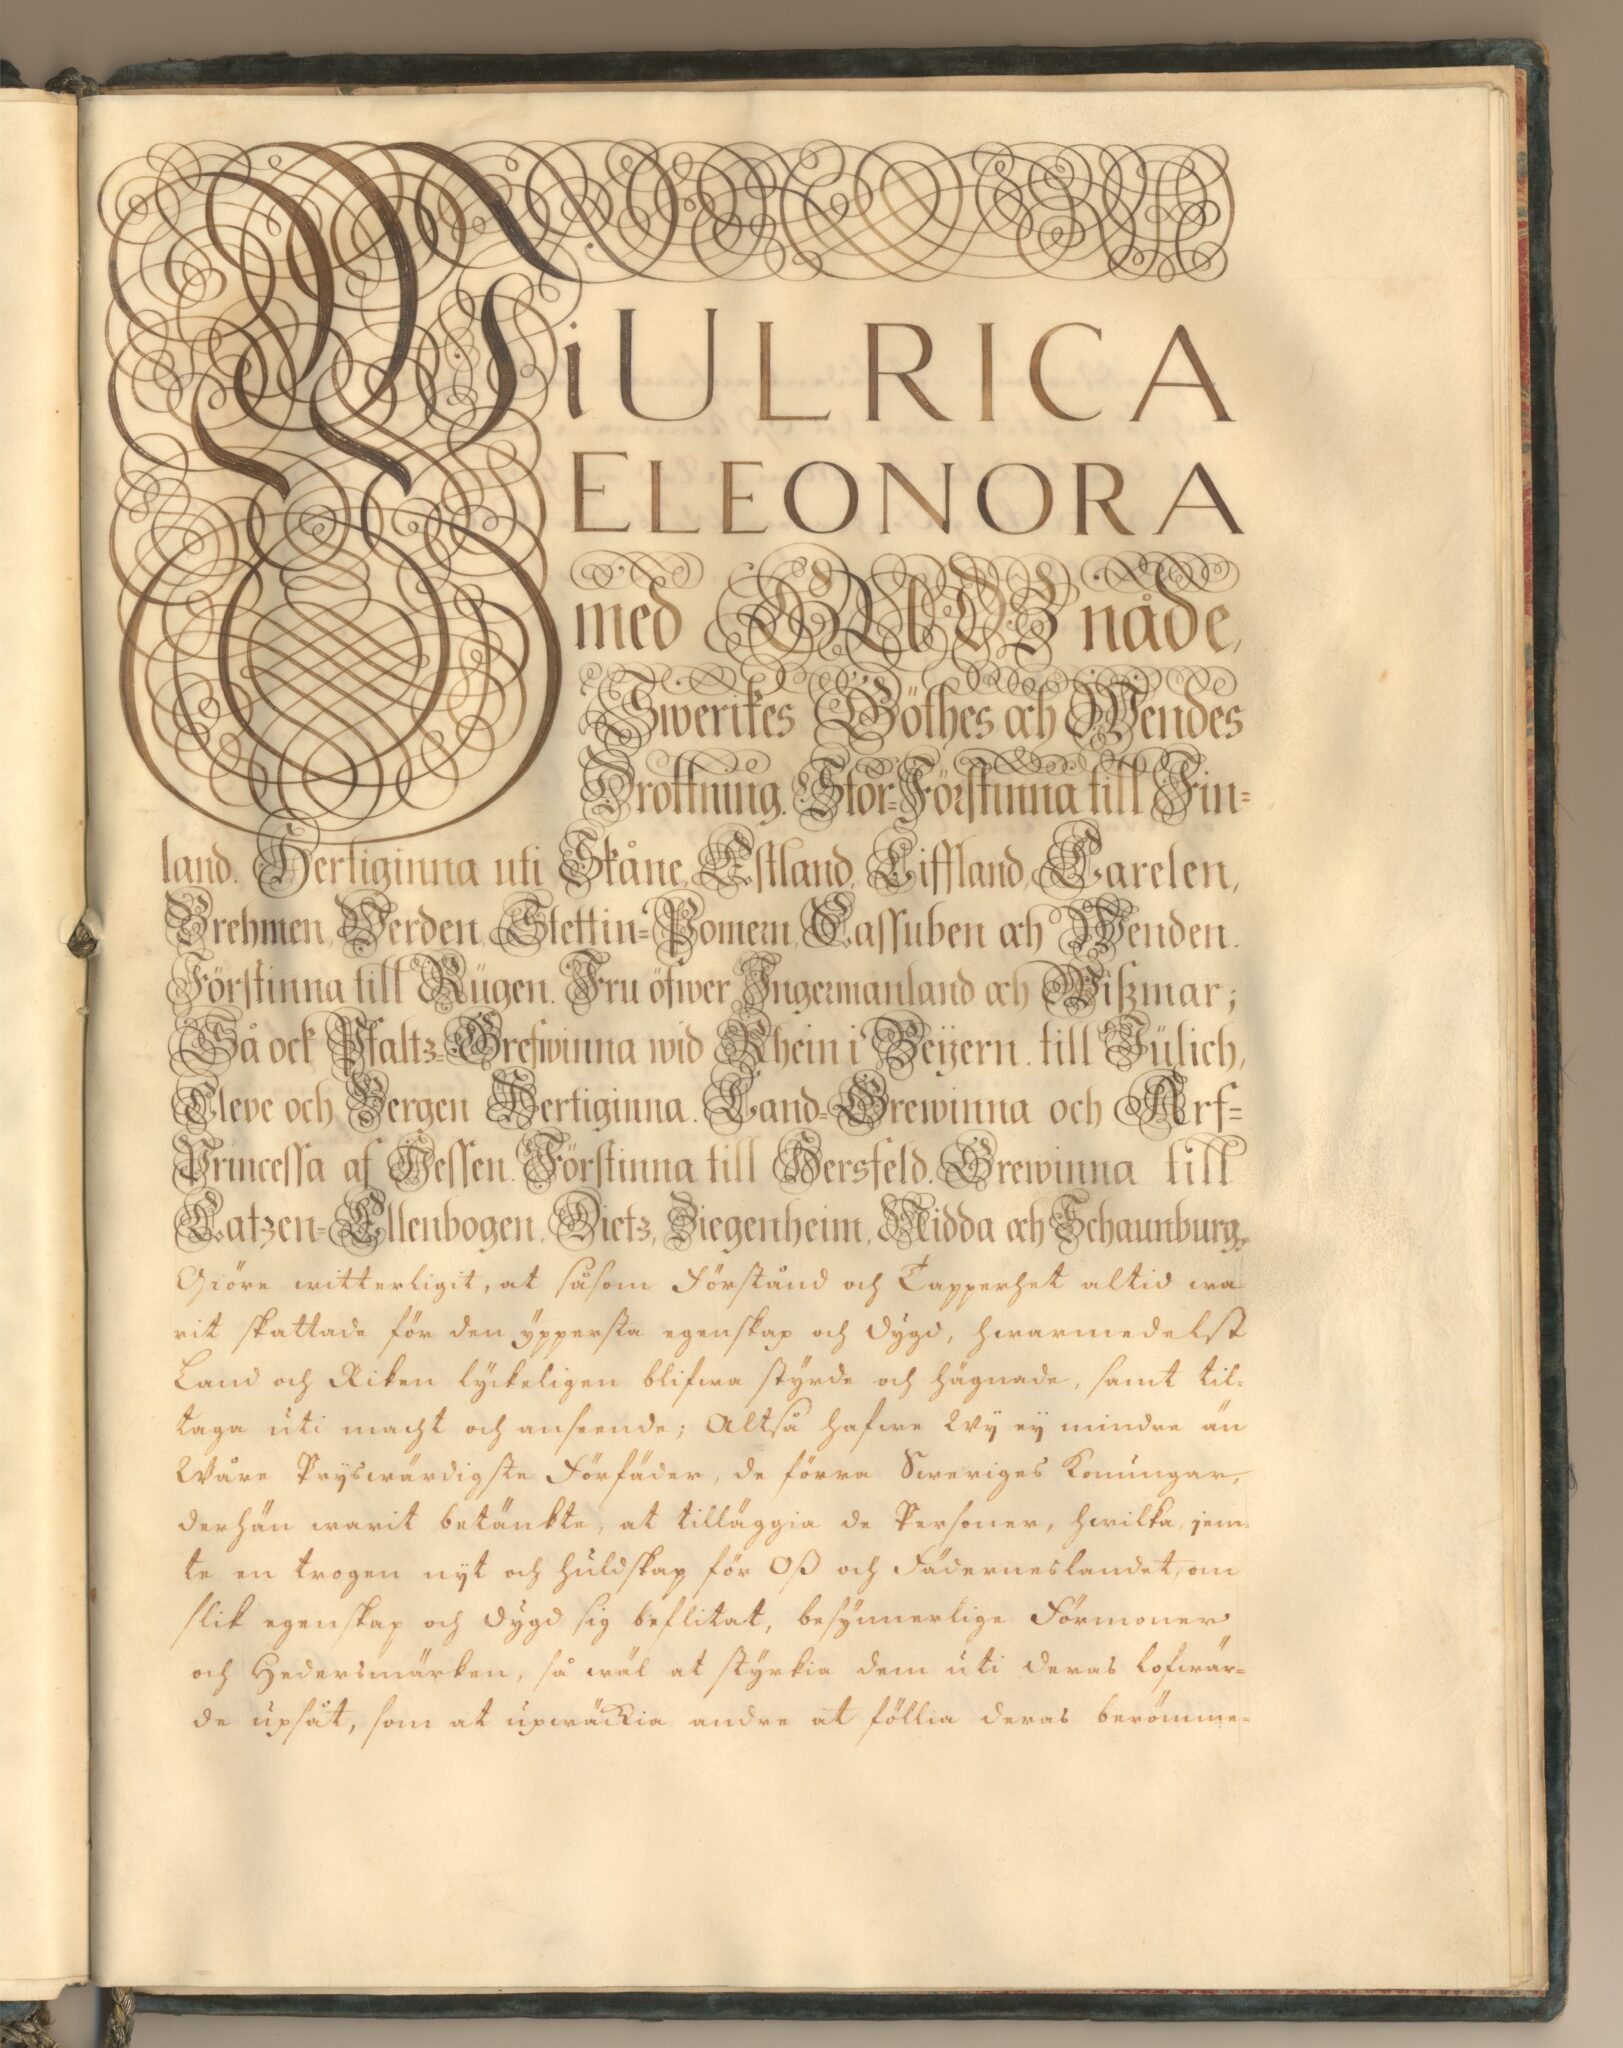 Wi ULRICA
ELEONORA
med GUDZ nåde,
Swerikes Göthes och Wendes
Drottning. Stor=Förstinna till Fin=
land. Hertiginna uti Skåne, Estland, Liffland, Carelen,
Brehmen, Verden, Stettin=Pomern, Cassuben och Wenden.
Förstinna till Rügen. Fru öfwer Ingermanland och Wißmar;
Så ock Pfaltz=Grefwinna wid Rhein i Beijern. till Jülich,
Cleve och Bergen Hertiginna. Land=Grewinna och Arf=
Princessa af Hessen. Förstinna till Hersfeld. Grewinna till
Catzen=Ellenbogen, Dietz, Ziegenheim, Nidda och Schaunburg,
Giöre witterligit, at såsom Förstånd och Tapperhet altid wa=
rit skattade för den yppersta egenskap och dygd, hwarmedelst
Land och Riken lyckeligen blifwa styrde och hägnade, samt til=
taga uti macht och anseende; Altså hafwe Wy ey mindre än
Wåre Pryswärdigste Förfäder, de förra Sweriges Konungar,
derhän warit betänkte, at tilläggia de Personer, hwilka, jem=
te en trogen nyt och huldskap för Oß och Fäderneslandet, om
slik egenskap och dygd sig beflitat, besynnerlige Förmoner
och Hedersmärken, så wäl at styrkia dem uti deras lofwär=
de upsåt, som at upwäckia andre at föllia deras berömme=